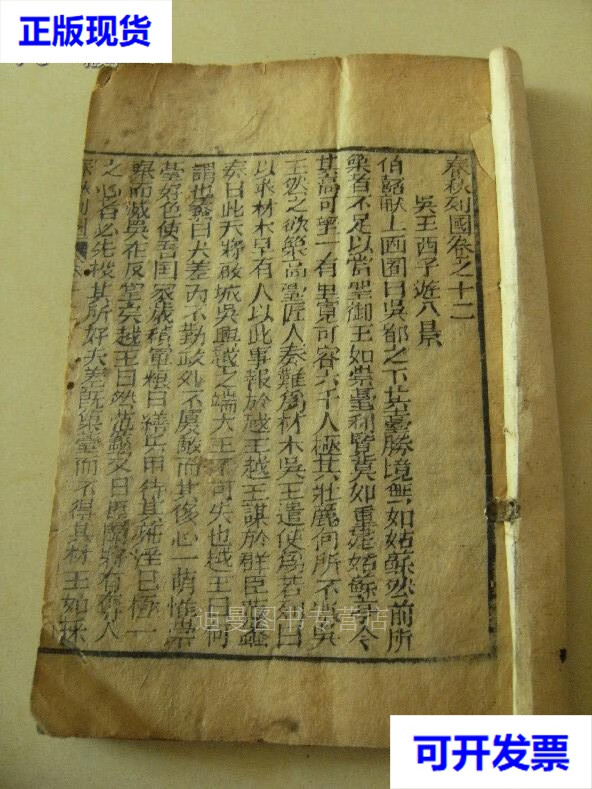 正版现货
春秋列國卷之十二
吳王西子遊八景
伯嚭献上画图曰吳都之下其臺勝境無如姑蘇然前所
築者不足以當聖御王如崇臺利覽莫如重建姑蘇高令
其高可望二百里寛可容六千人極其壮麗何所不美吳
王然之欲築高臺匠人奏難爲材木吳王遣使爲若
以求材木早有人以此事報於越王越王謀於群臣范蠡
奏曰此天將破城吳興越之端大王不可失也越王曰何
謂也蠡曰夫差而不勤政処不厚蔵而其侈心一萌惟崇
臺好色使吾国家歳積軍粮日繕兵甲待其疏淫已極一
舉而滅吳在反掌矣越王曰然范蠡又曰臣聞將有奪人
之心者必先投其所好夫差既築臺而不得其材王如採
春秋列國 卷
迪曼图书专营店
可开发票